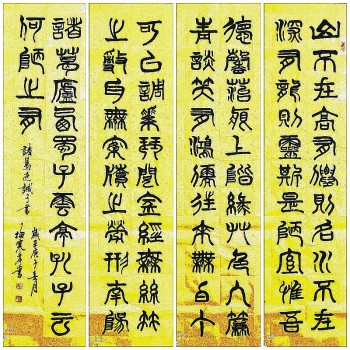 山不在高有仙則名水不在
深有龍則靈斯是陋室惟吾
德馨苔痕上階綠草色入簾
青談笑有鴻儒往來無白丁
可以調素琴閱金經無絲竹
之亂耳無案牘之勞形南陽
諸葛廬西蜀子雲亭孔子云
何陋之有
諸葛亮誡子書
歲在庚子月
書